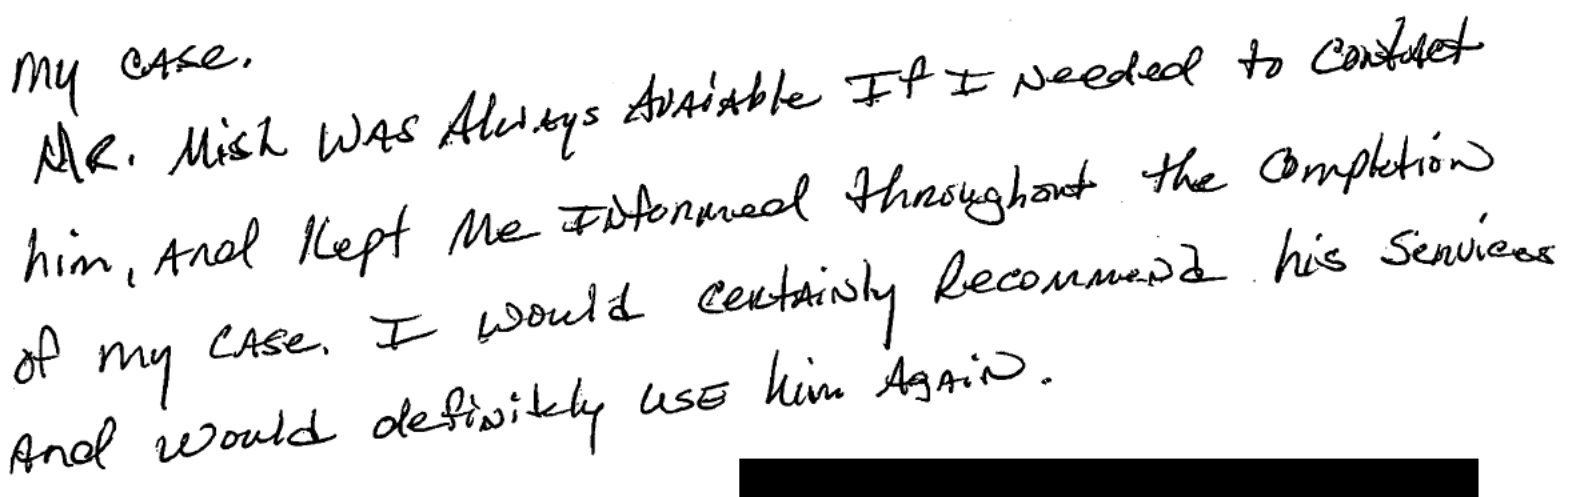 my case.
Mr. Mish was Always Avaiable If I needed to contact
him, And Kept Me Informed throughout the Completion
of my case. I would certainly Recommend his Services
And would definitely use him Again.